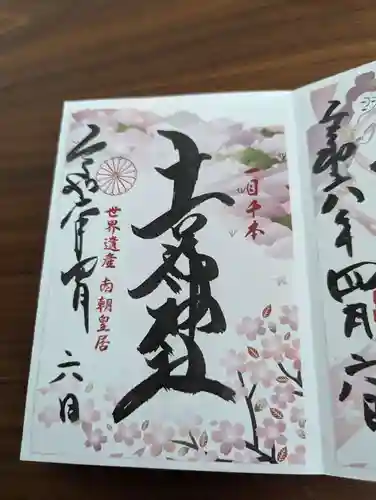 令和六年四月六日
一目千本
吉水神社
世界遺産 南朝皇居
令和六年四月六日